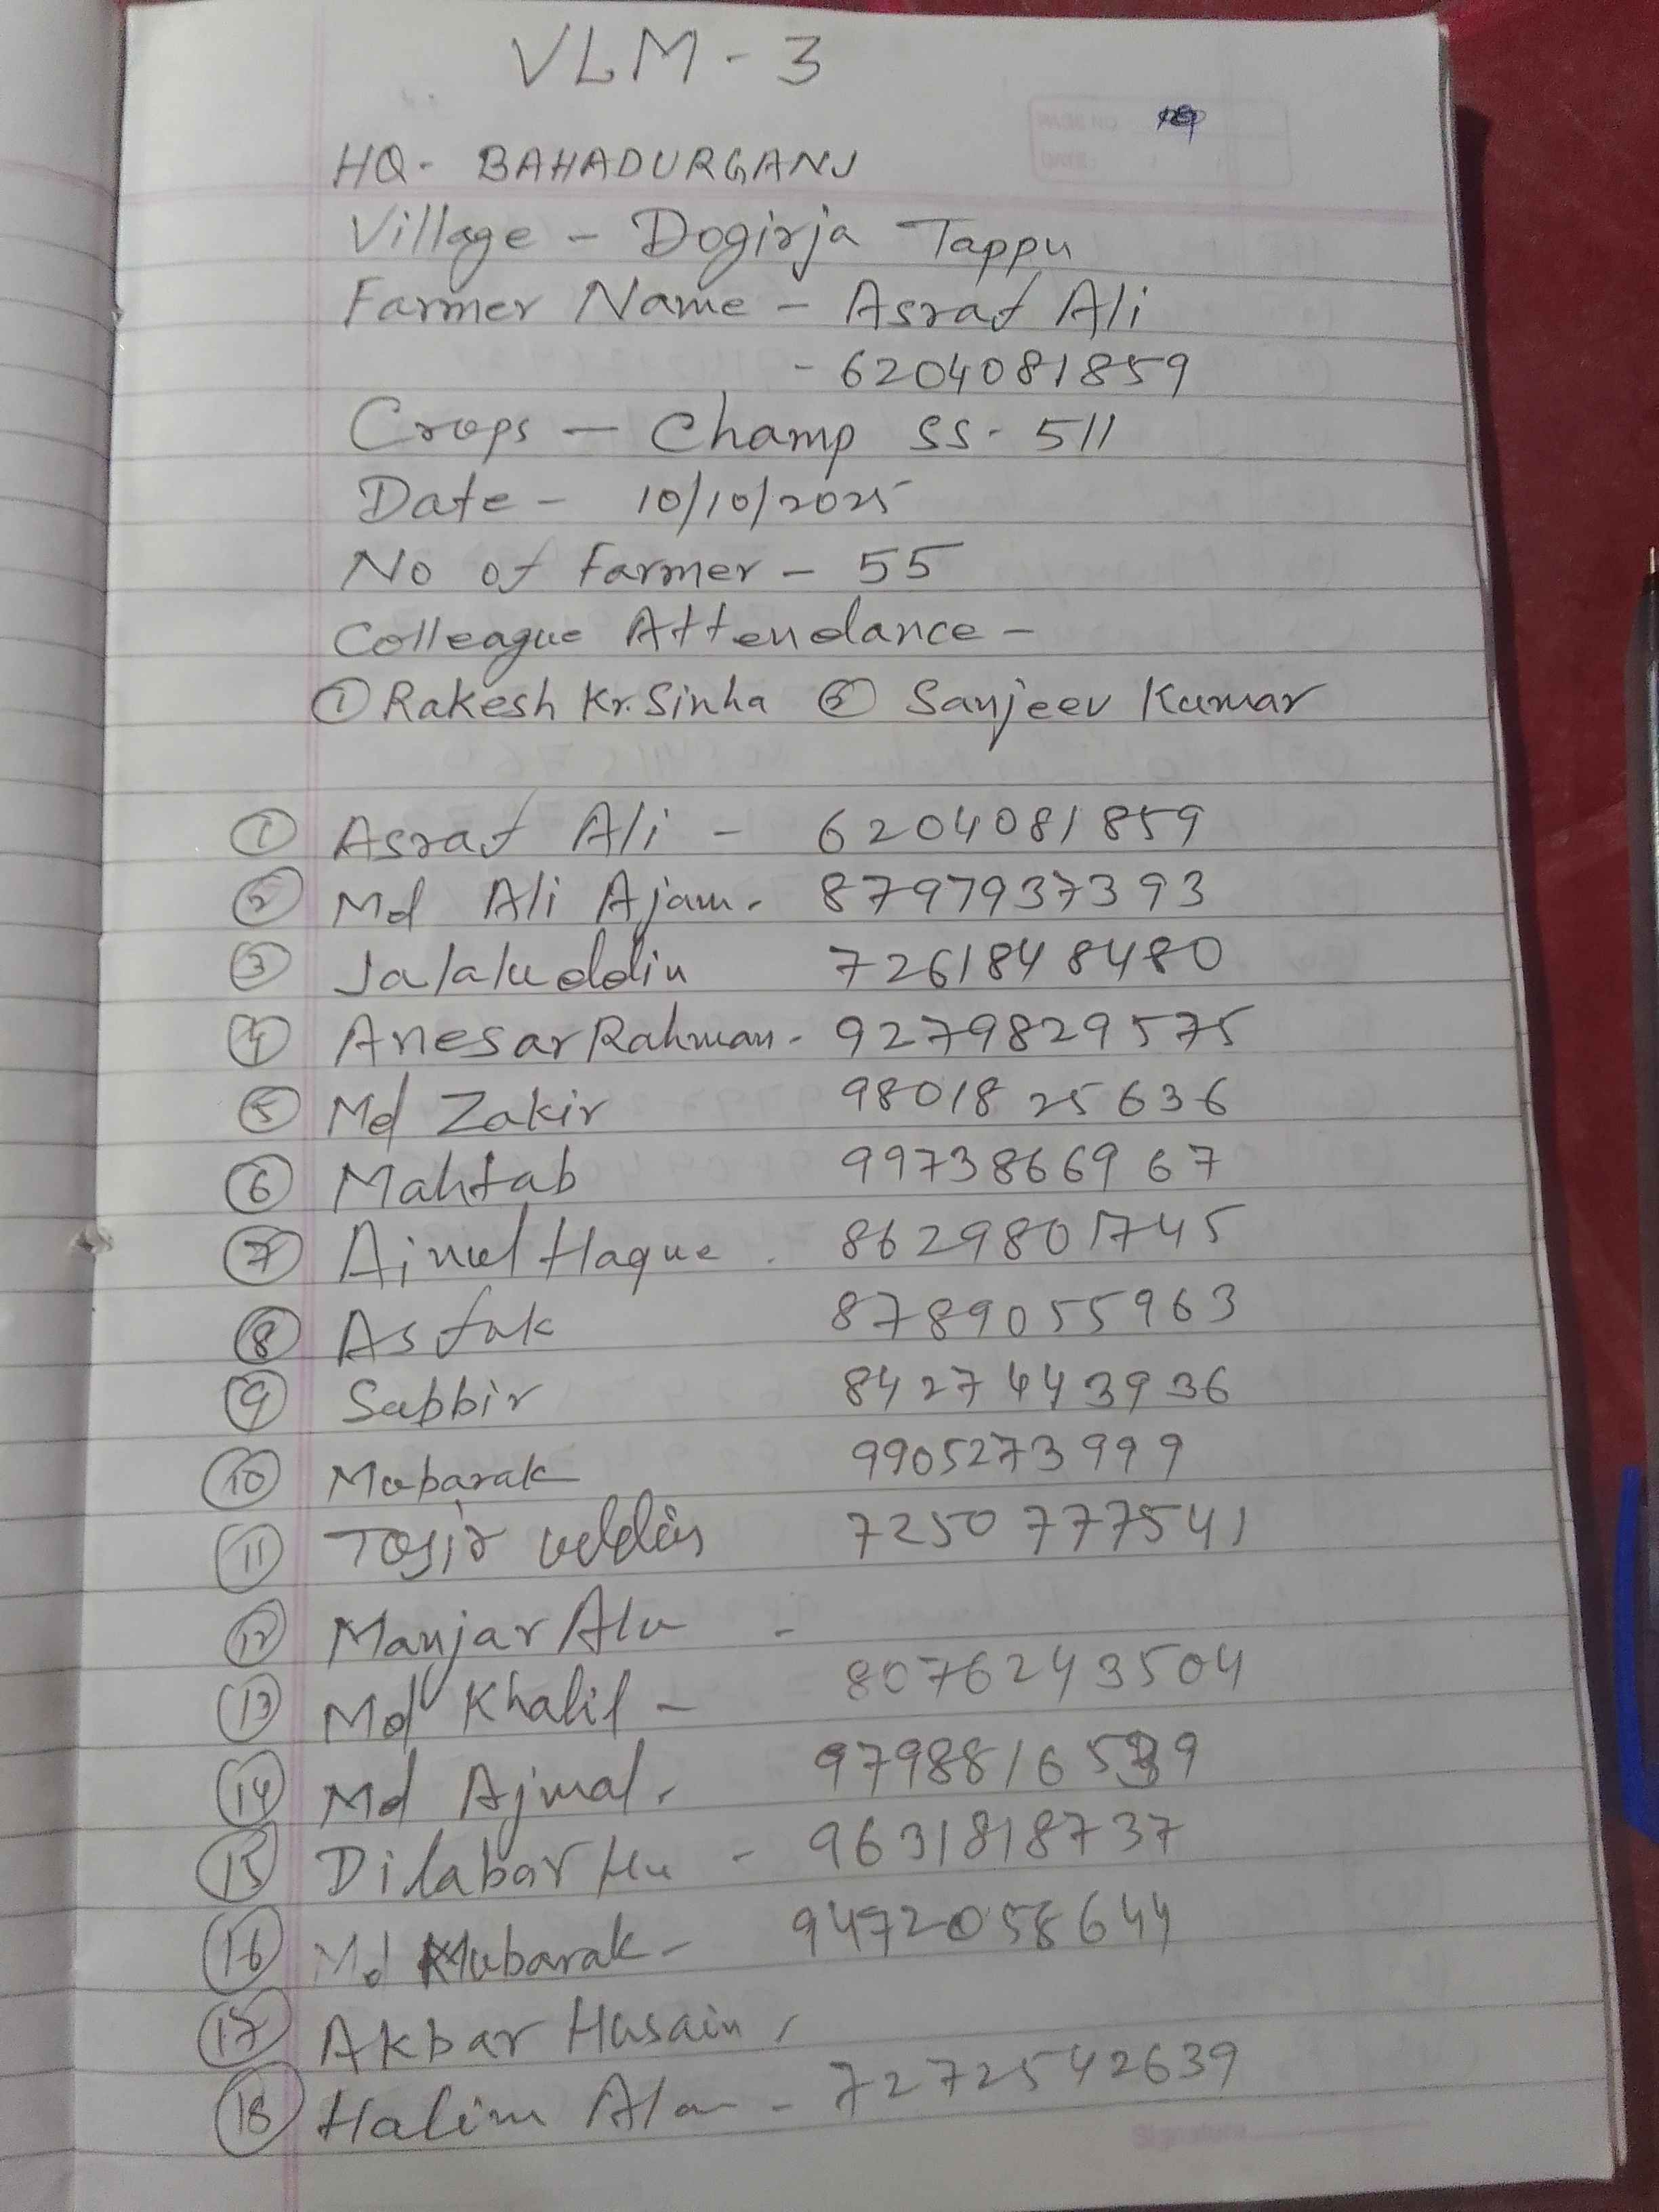 VLM - 3
HQ - BAHADURGANJ
Village - Dogirja Tappu
Farmer Name - Asraf Ali
- 6204081859
Crops - Champ SS - 511
Date - 10/10/2025
No of Farmer - 55
Colleague Attendance -
① Rakesh Kr. Sinha ② Sanjeev Kumar
① Asraf Ali - 6204081859
② Md Ali Ajam. 8797937393
③ Jalaluddin 7261848480
④ Anesar Rahman - 9279829575
⑤ Md Zakir 9801825636
⑥ Mahtab 9973866967
⑦ Ainul Haque . 8629801745
⑧ Asfak 8789055963
⑨ Sabbir 8427443936
⑩ Mobarak 9905273999
⑪ uddin 7250777541
⑫ Manjar Ala -
⑬ Md Khalil - 8076243504
⑭ Md Ajmal.
⑮ Dilabar Hu - 9631818737
⑯ Md Mubarak - 9472058644
⑰ Akbar Husain,
⑱ Halim Ala - 7272542639